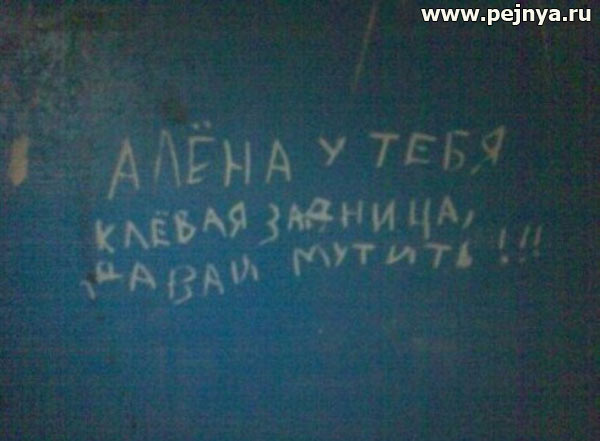 www.pejnya.ru
АЛЁНА У ТЕБЯ
КЛЁВАЯ ЗАДНИЦА,
ДАВАЙ МУТИТЬ!!!